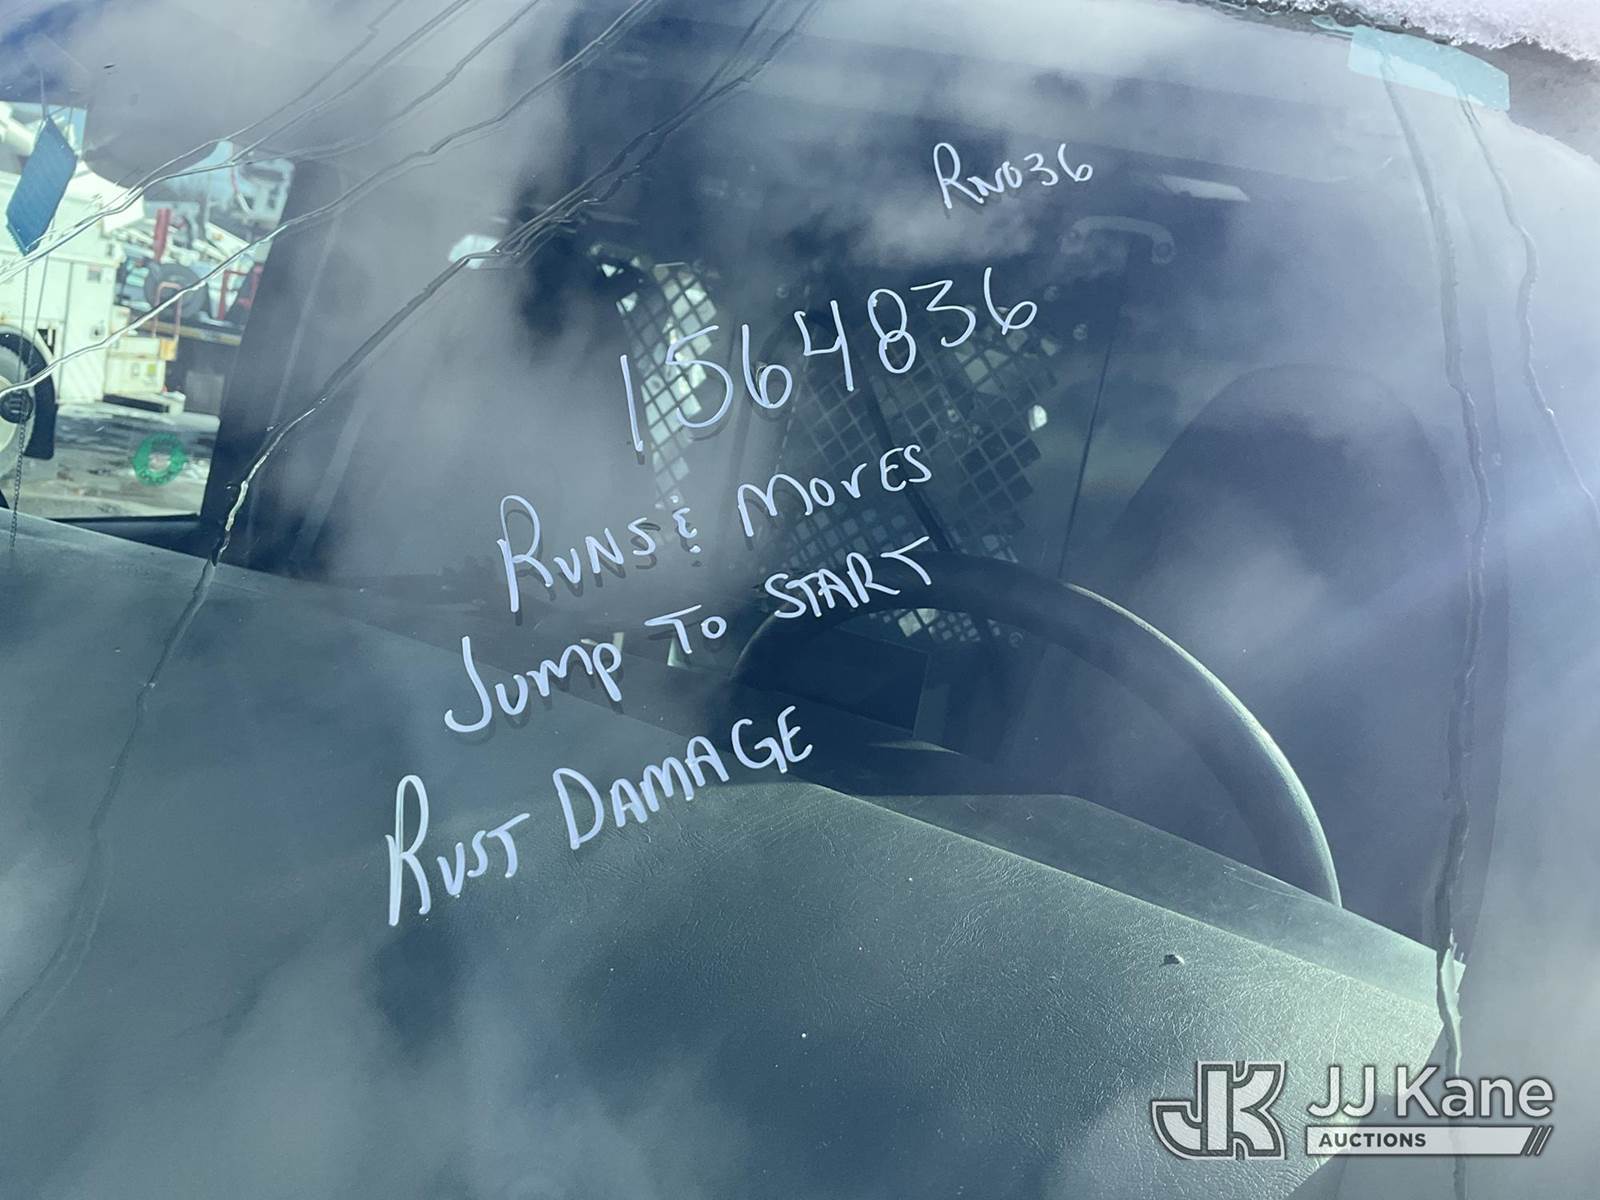 RNO36
1564836
RUNS & MOVES
JUMP TO START
RUST DAMAGE
JJ Kane
AUCTIONS